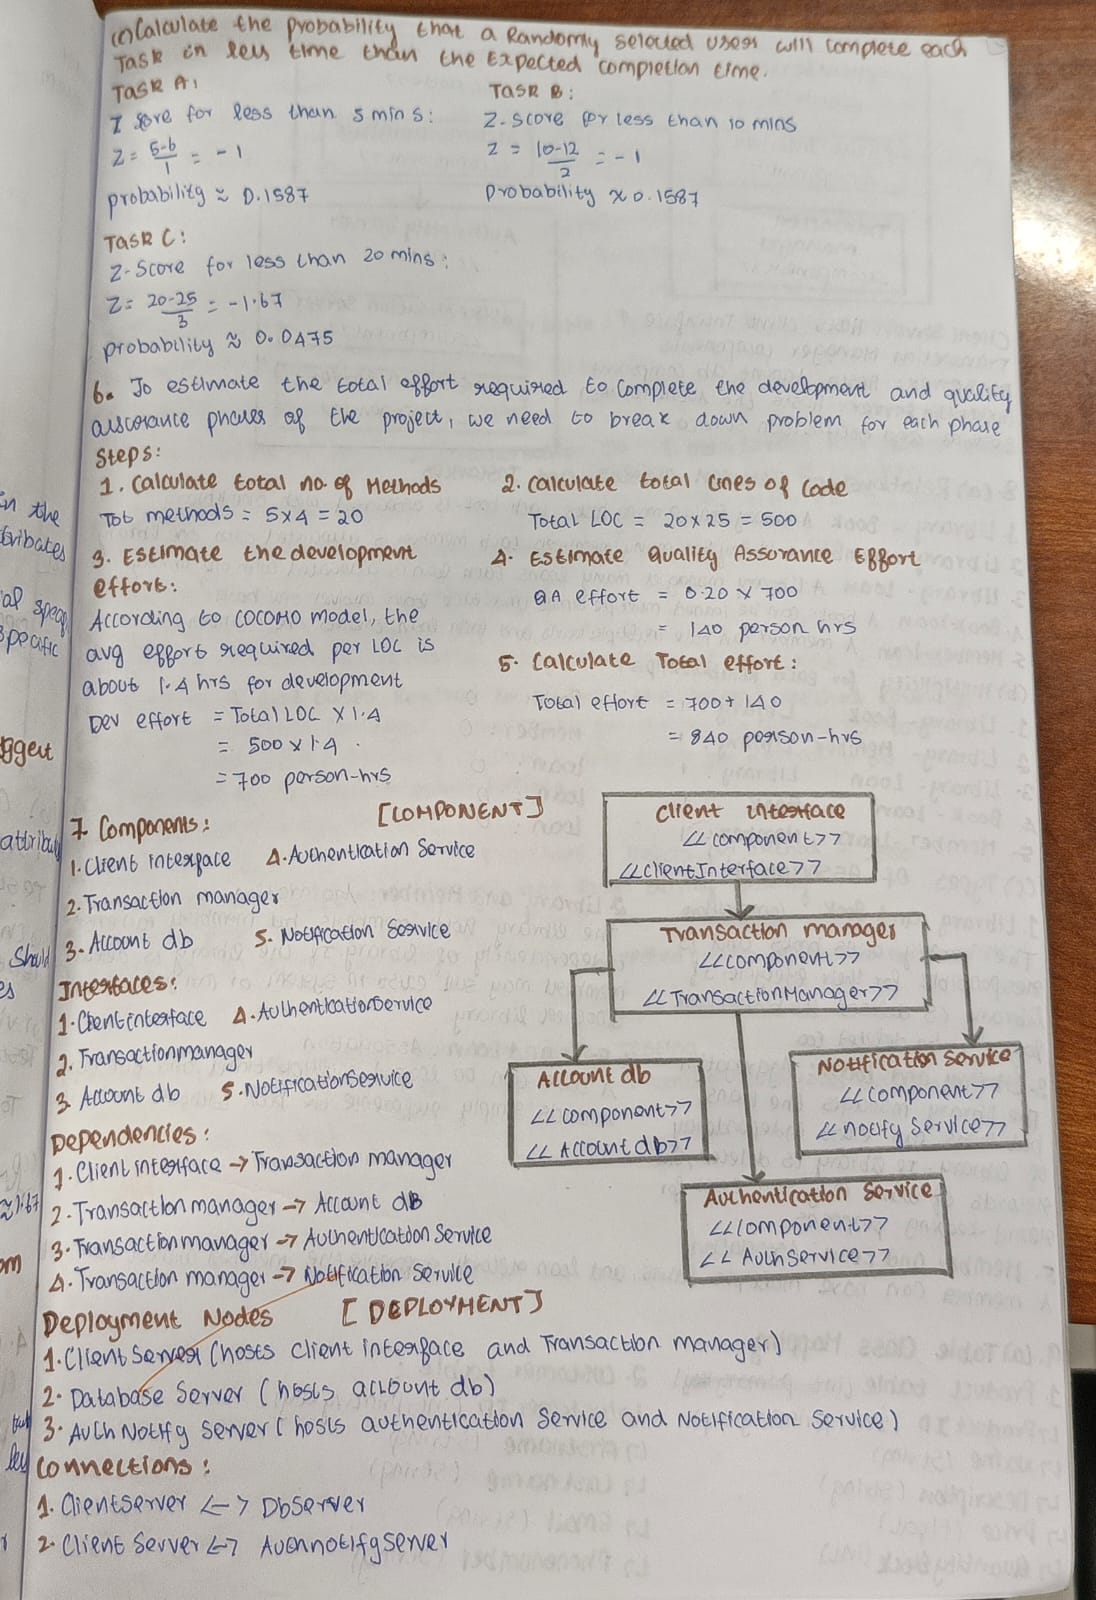 (c) Calculate the probability that a Randomly selected user will complete each
Task in less time than the Expected completion time.
Task A:
Z score for less than 5 mins:
Z = 5-6/1 = -1
probability ≈ 0.1587
Task B:
Z-score for less than 10 mins
Z = 10-12/2 = -1
Probability ≈ 0.1587
Task C:
Z-Score for less than 20 mins:
Z = 20-25/3 = -1.67
probability ≈ 0.0475
6. To estimate the total effort required to complete the development and quality
assurance phases of the project, we need to break down problem for each phase
Steps:
1. Calculate total no. of Methods
Tot methods = 5x4 = 20
2. Calculate total lines of code
Total LOC = 20x25 = 500
3. Estimate the development
effort:
According to COCOMO model, the
avg effort required per LOC is
about 1.4 hrs for development
Dev effort = Total LOC x 1.4
= 500 x 1.4
= 700 person-hrs
4. Estimate Quality Assurance Effort
QA effort = 0.20 x 700
= 140 person hrs
5. Calculate Total effort:
Total effort = 700 + 140
= 840 person-hrs
7. Components: [COMPONENT]
1. Client interface 4. Authentication Service
2. Transaction manager
3. Account db 5. Notification Service
Interfaces:
1. Clientinterface 4. AuthenticationService
2. Transactionmanager
3. Account db 5. NotificationService
Dependencies:
1. Client interface -> Transaction manager
2. Transaction manager -> Account db
3. Transaction manager -> Authentication Service
4. Transaction manager -> Notification Service
Client interface
<<component>>
<<clientInterface>>
Transaction manager
<<component>>
<<TransactionManager>>
Account db
<<component>>
<<Account db>>
Notification Service
<<component>>
<<notify Service>>
Authentication Service
<<component>>
<<AuthService>>
Deployment Nodes [DEPLOYMENT]
1. Client Server (hosts client interface and Transaction manager)
2. Database Server (hosts account db)
3. Auth Notify Server (hosts authentication Service and Notification Service)
Connections:
1. Clientserver <-> Dbserver
2. Client Server <-> Authnotifyserver